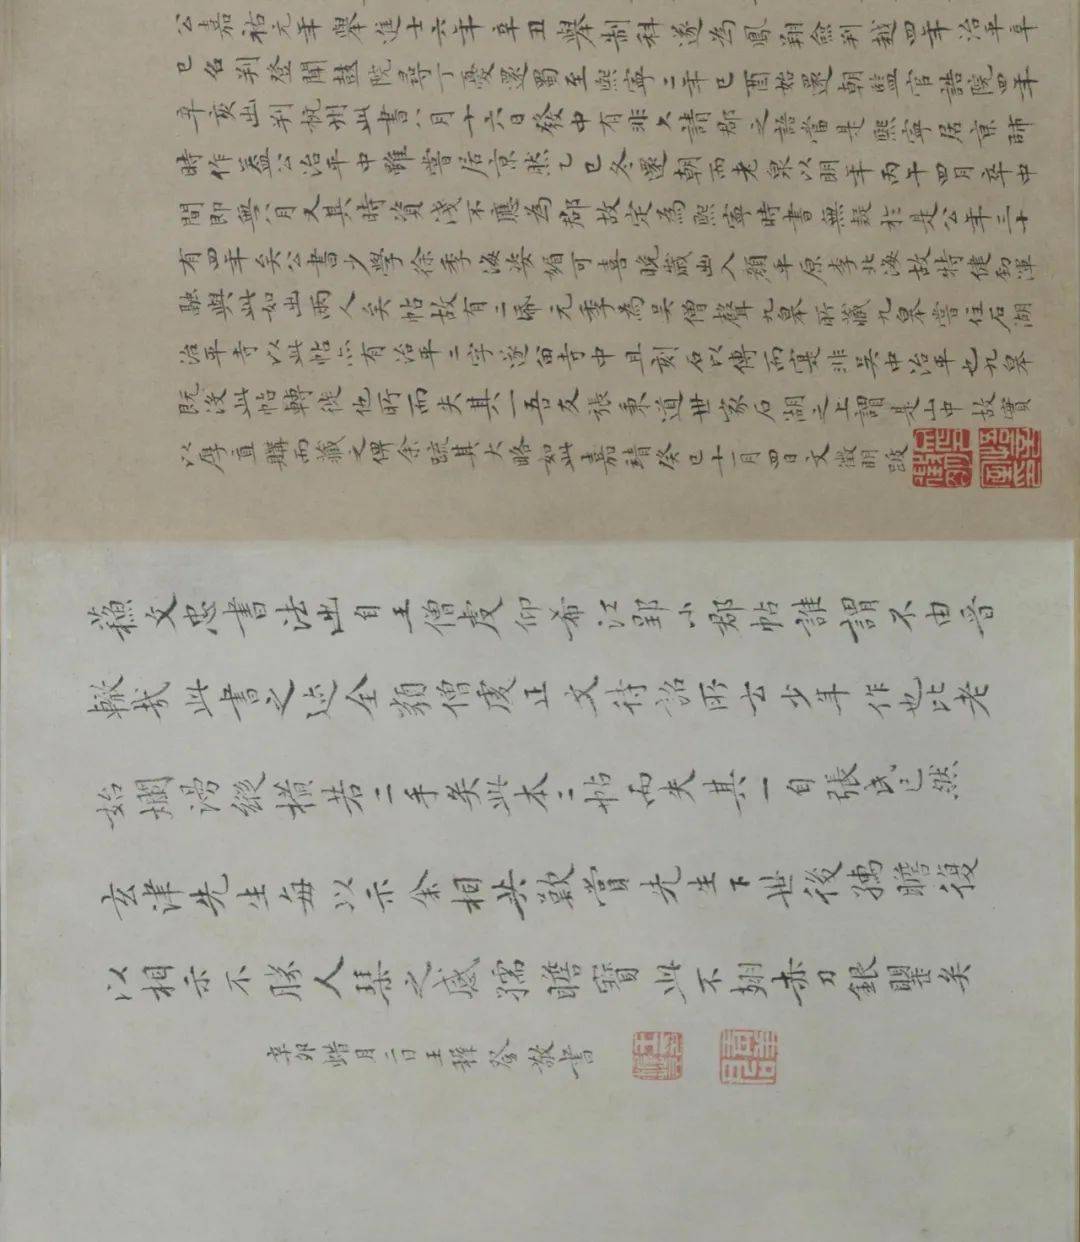 公嘉祐元年舉進士六年辛丑舉制科遂為鳳翔僉判越四年治平辛
巳名判登聞鼓院尋丁憂還蜀至熙寧二年己酉始還朝監官誥院四年
辛亥出判杭州此書八月十六日發中有非久請郡之語當是熙寧居京師
時作蓋公治平中雖嘗居京然乙巳冬還朝而老泉以明年丙午四月卒中
間即無八月又其時資淺不應為郡故定為熙寧時書無疑於是公年三十
有四年矣公書少學徐季海姿媚可喜晚歲出入顏平原李北海故特健勁渾
融與此如出兩人矣帖故有二帋元季為吳僧聲九皋所藏九皋嘗住石湖
治平寺以此帖亦有治平二字遂留寺中且刻石以傳而寔非吳中治平也九皋
既沒此帖轉徙他所而失其一吾友張秉道世家石湖之上謂是山中故實
以厚直購而藏之俾余疏其大略如此嘉靖癸巳十一月四日文徵明跋
蘓文忠書法出自王僧虔仰希江郢小郡帖誰謂不由晉
轍哉此書之迹全類僧虔正文待詔所云少年作也比老
始爛漫縱橫若二手矣此本二帖而失其一自張氏已然
玄津先生每以示余相共歎賞先生下世後孺瞻復
以相示不勝人琴之感孺瞻寶此不翅赤刀銀甖矣
辛卯蜡月二日王穉登敬書